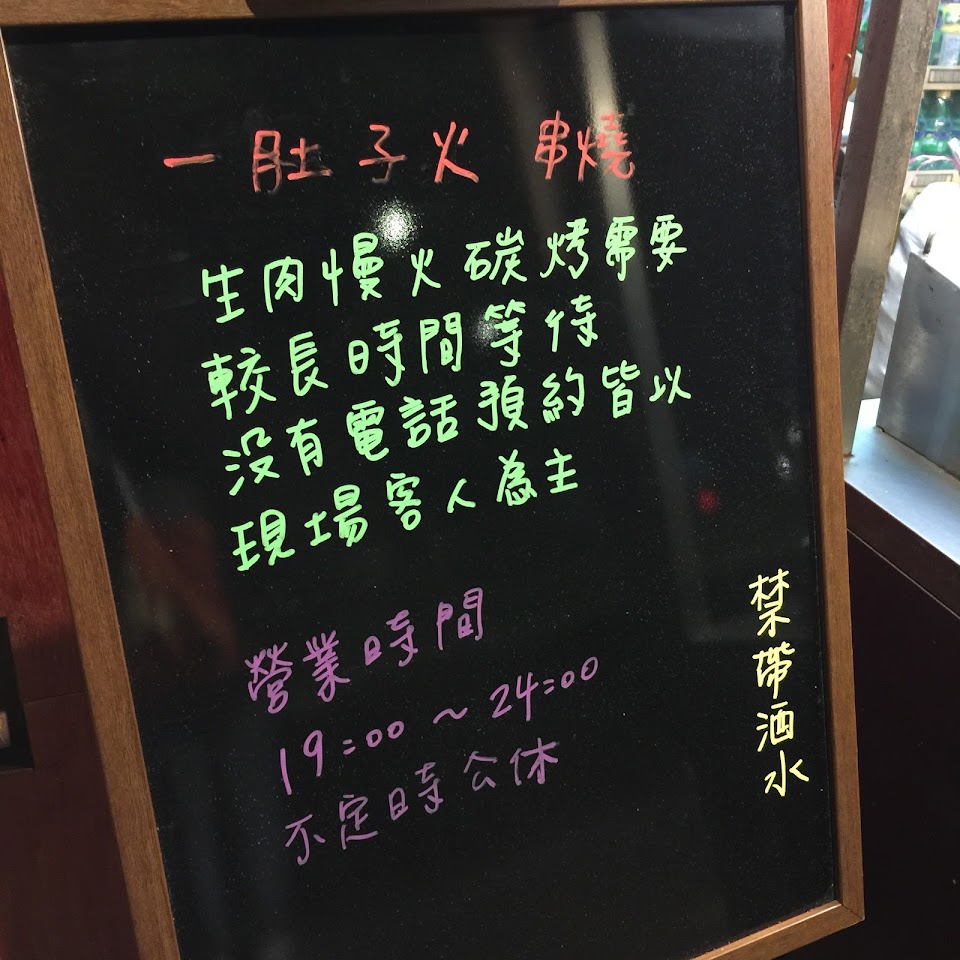 一肚子火 串燒
生肉慢火碳烤需要
較長時間等待
沒有電話預約皆以
現場客人為主
營業時間
19:00~24:00
不定時公休
禁帶酒水